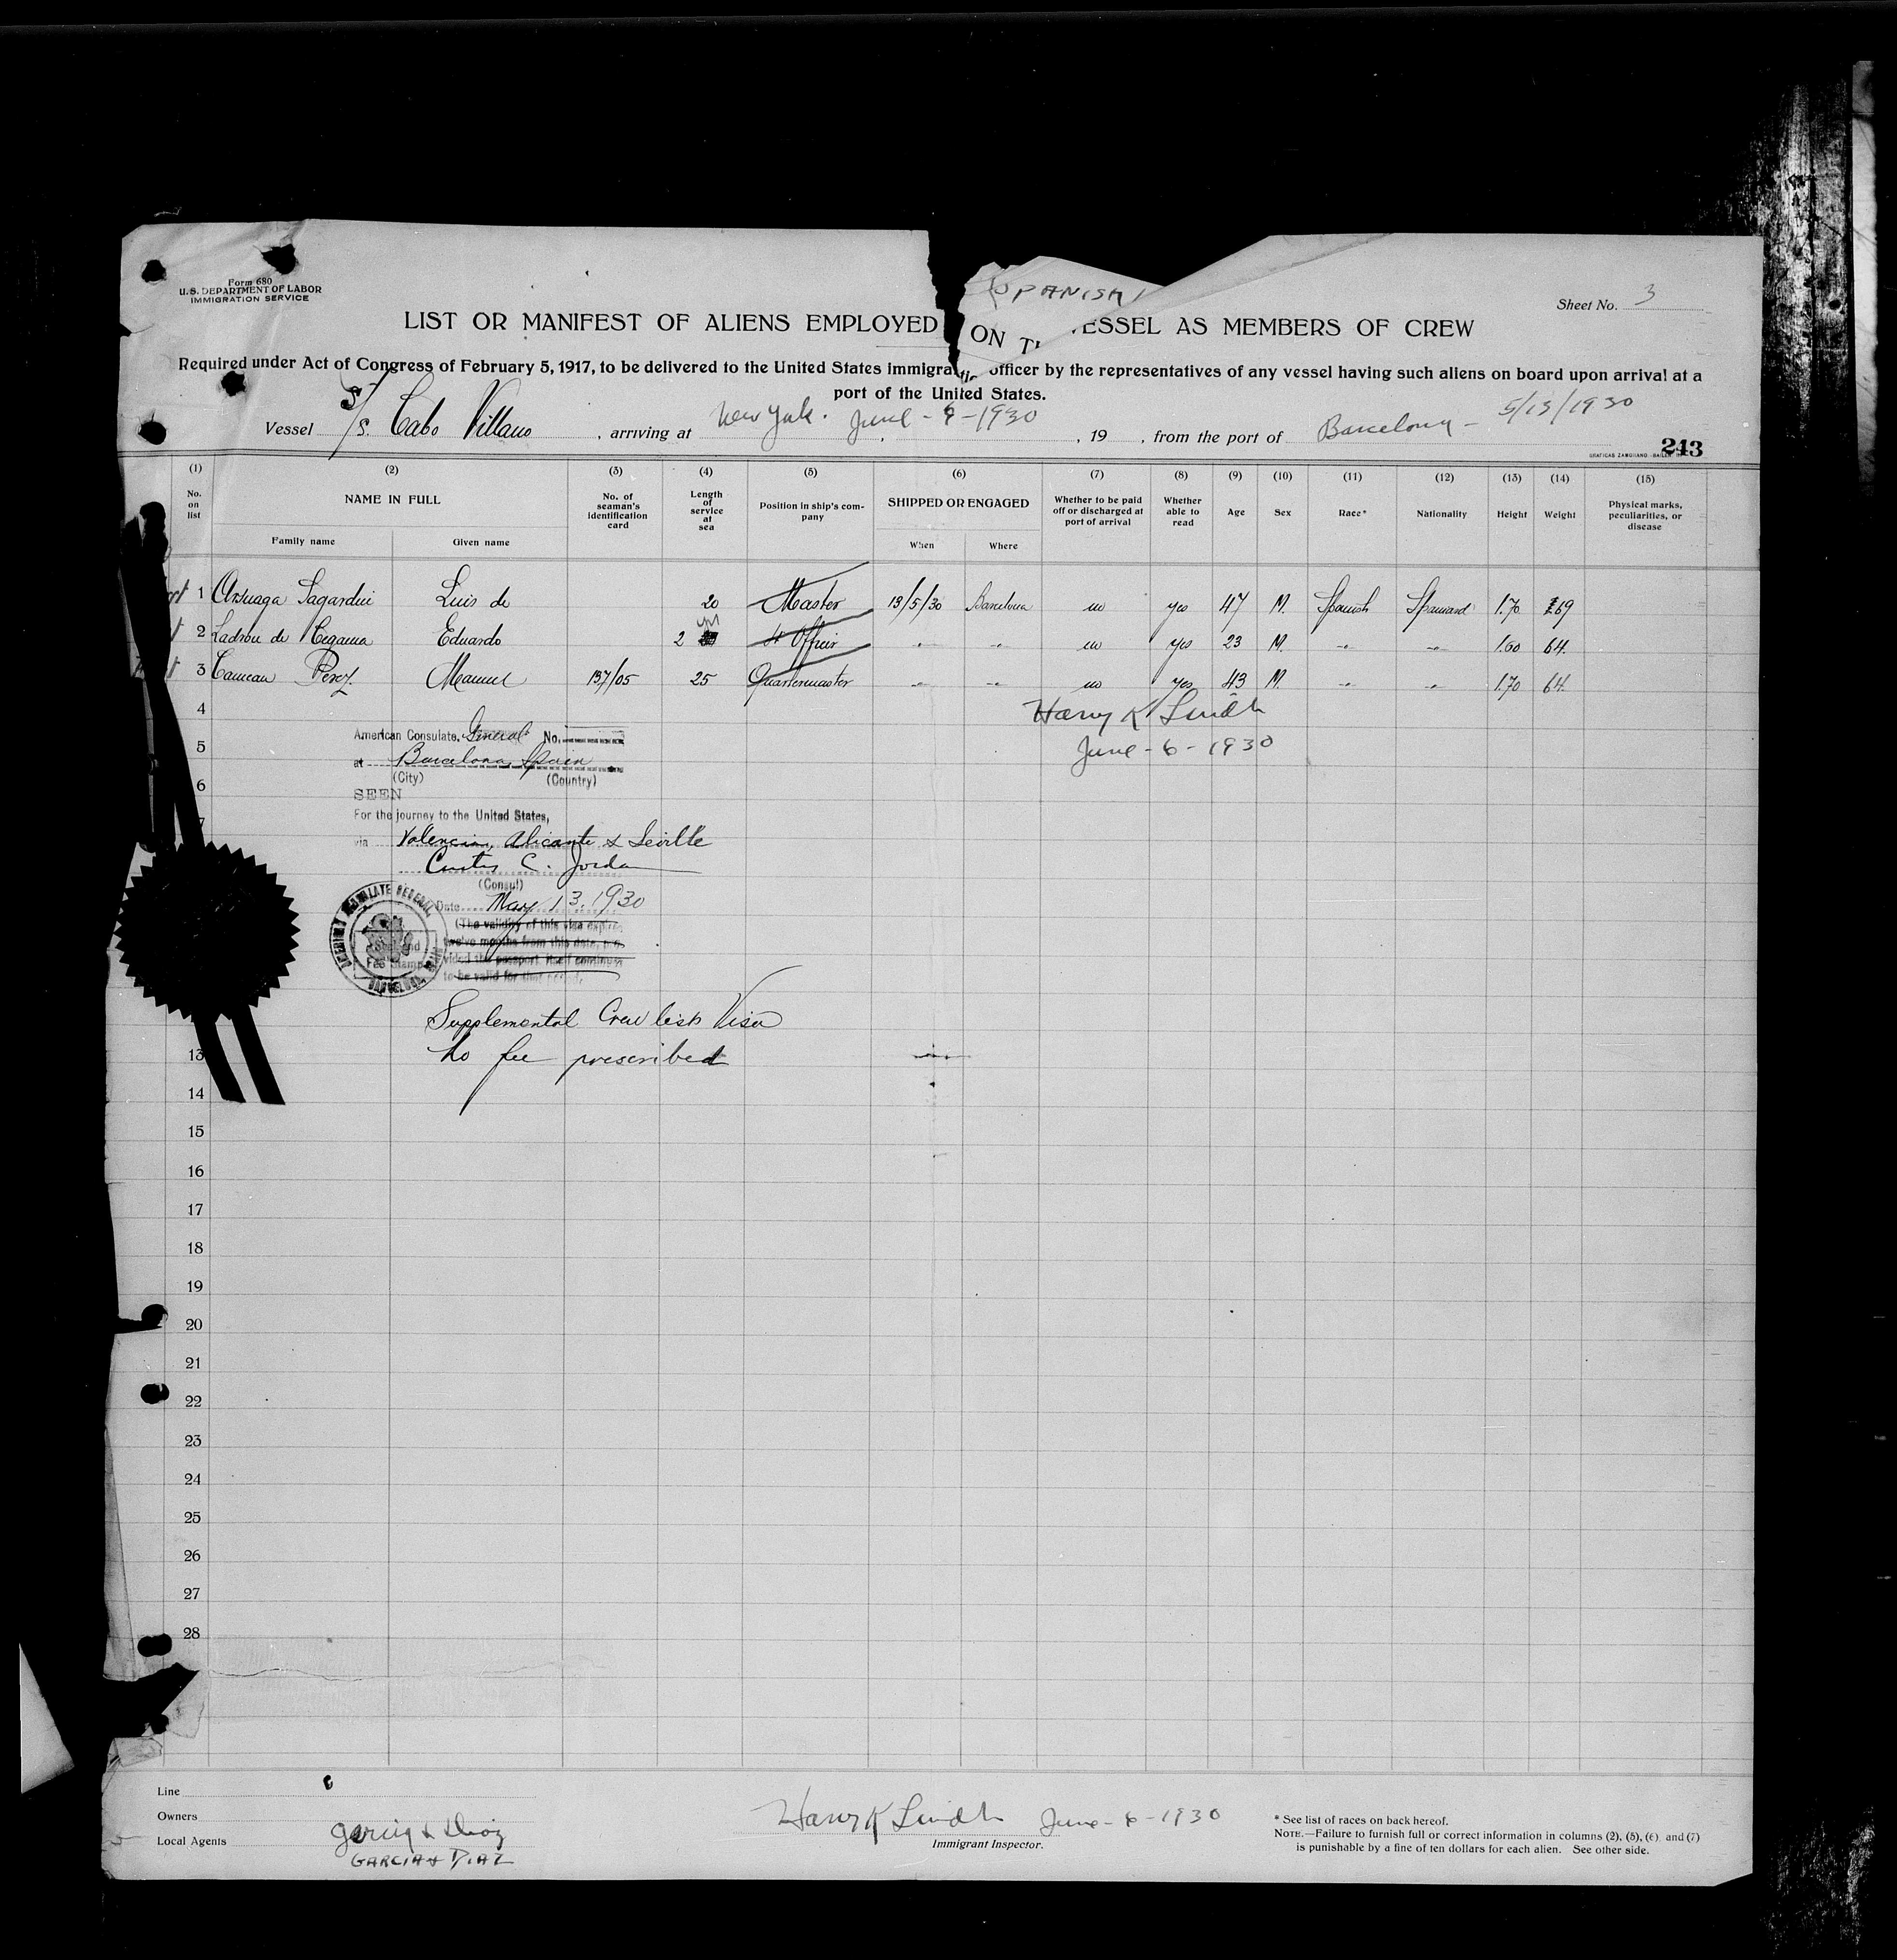 Form 680
U. S. DEPARTMENT OF LABOR
IMMIGRATION SERVICE
SPANISH
Sheet No. 3
LIST OR MANIFEST OF ALIENS EMPLOYED ON VESSEL AS MEMBERS OF CREW
Required under Act of Congress of February 5, 1917, to be delivered to the United States immigration officer by the representatives of any vessel having such aliens on board upon arrival at a
port of the United States.
Vessel S/S. Cabo Villano, arriving at New York. June - 6 - 1930, 19 , from the port of Barcelona - 5/13/1930
243
(1) (2) (3) (4) (5) (6) (7) (8) (9) (10) (11) (12) (13) (14) (15)
No. on list NAME IN FULL No. of seaman's identification card Length of service at sea Position in ship's company SHIPPED OR ENGAGED Whether to be paid off or discharged at port of arrival Whether able to read Age Sex Race* Nationality Height Weight Physical marks, peculiarities, or disease
Family name Given name When Where
1 Arsuaga Sagardui Luis de 20 Master 13/5/30 Barcelona no yes 47 M. Spanish Spaniard 1.70 69
2 Ladron de Cegama Eduardo 2 4t Officer -"- -"- no yes 23 M. -"- -"- 1.60 64.
3 Perez Manuel 137/05 25 Quartermaster -"- -"- no yes 43 M. -"- -"- 1.70 64.
4
Harry K Lindh
June - 6 - 1930
American Consulate General No.
5
at Barcelona, Spain
(City) (Country)
6
SEEN
For the journey to the United States,
7
via Valencia, Alicante & Seville
Curtis C. Jordan
(Consul)
Date May 13. 1930
(The validity of this visa expires
twelve months from this date, pro-
vided the passport itself continues
to be valid for that period.
Supplemental Crew list Visa
No fee prescribed
13
14
15
16
17
18
19
20
21
22
23
24
25
26
27
28
Line
Owners
Local Agents Garcia & Diaz
GARCIA & DIAZ
Harry K Lindh June - 6 - 1930
Immigrant Inspector.
* See list of races on back hereof.
NOTE.—Failure to furnish full or correct information in columns (2), (5), (6), and (7)
is punishable by a fine of ten dollars for each alien. See other side.